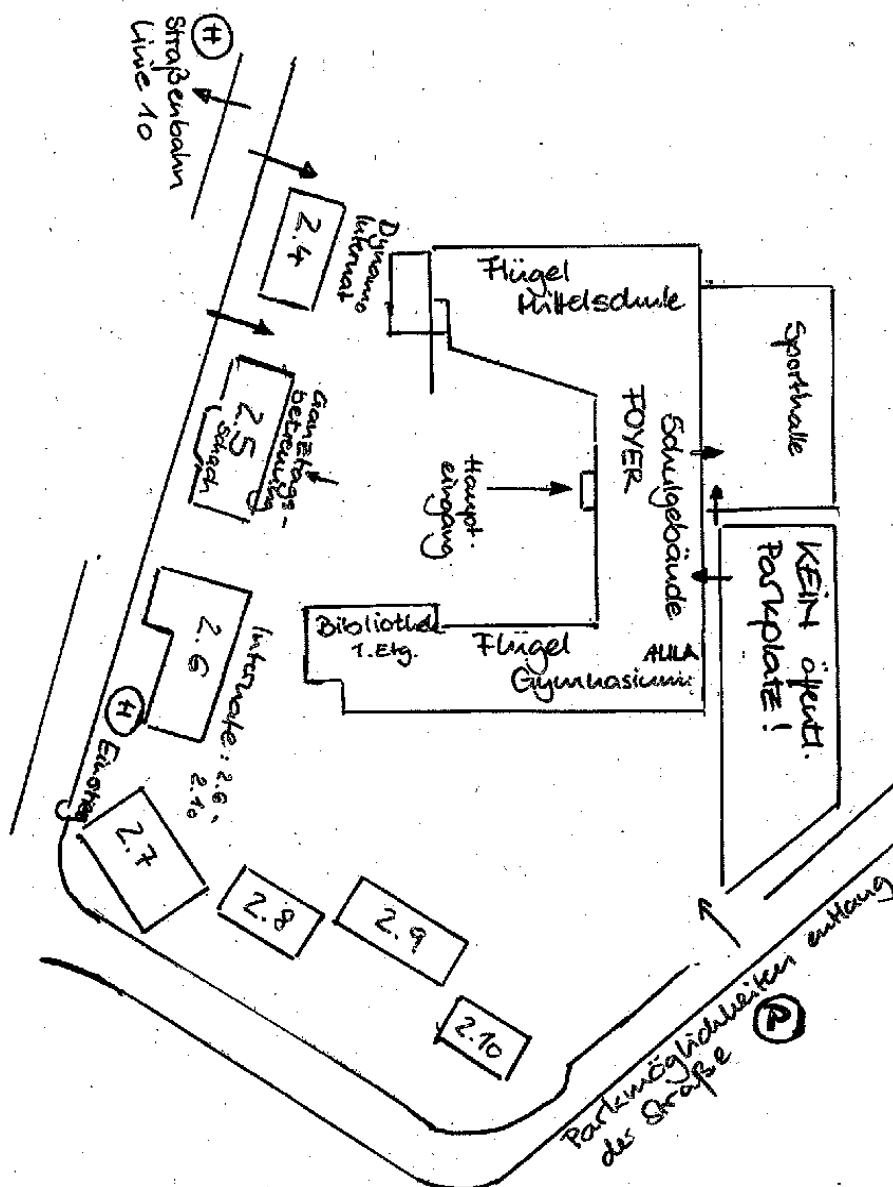 (H)
Straßenbahn
Linie 10
2.4
Dynamo
Internat
Flügel
Mittelschule
Sporthalle
2.5
Schach
Ganztags-
betreuung
Haupt-
eingang
FOYER
Schulgebäude
KEIN öffentl.
Parkplatz!
2.6
Internate: 2.6 -
2.10
Bibliothek
1. Etg.
Flügel
Gymnasium
AULA
(H)
Einstieg
2.7
2.8
2.9
2.10
(P)
Parkmöglichkeiten entlang
der Straße